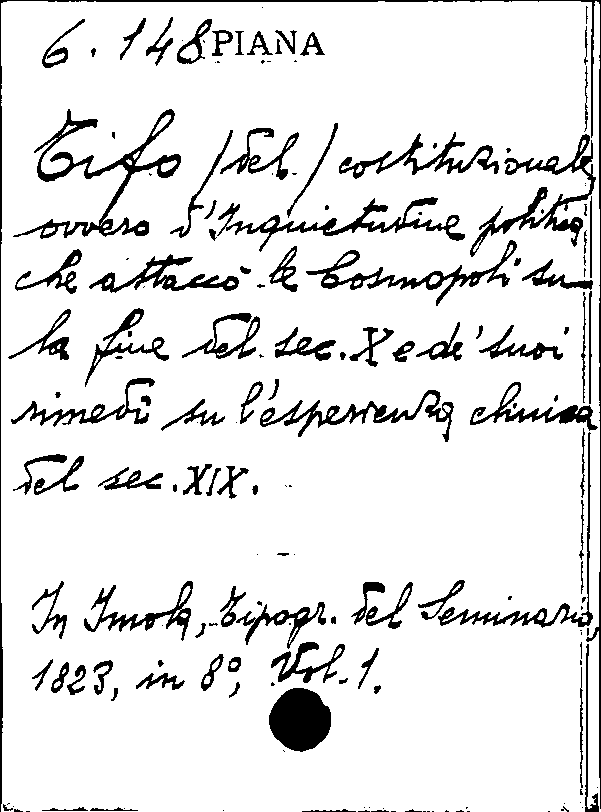 6.148 PIANA
Tifo (del) costituzionale
ovvero d'Inquietudine politica
che attaccò le Cosmopoli su
la fine del sec. X e de' suoi
rimedi su l'esperienza clinica
del sec. XIX.
In Imola, Tipogr. del Seminario,
1823, in 8°, Vol. 1.